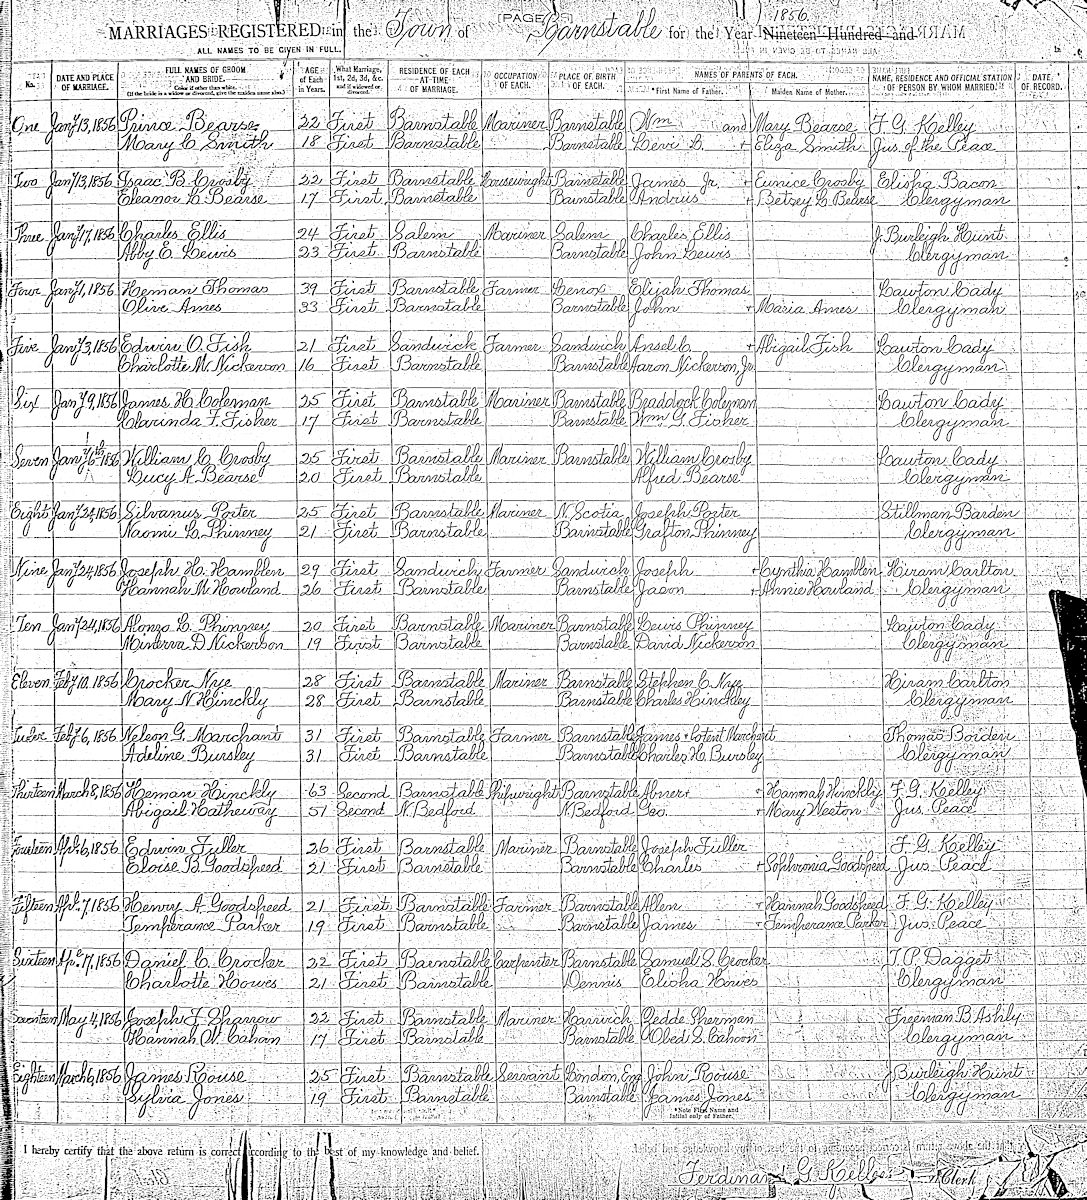 [PAGE
1856.
MARRIAGES REGISTERED in the Town of Barnstable for the Year Nineteen Hundred and
ALL NAMES TO BE GIVEN IN FULL.
No. DATE AND PLACE OF MARRIAGE. FULL NAMES OF GROOM AND BRIDE. Color if other than white. (If the bride is a widow or divorced, give the maiden name also.) AGE of Each in Years. What Marriage, 1st, 2d, 3d, &c. and if widowed or divorced. RESIDENCE OF EACH AT TIME OF MARRIAGE. OCCUPATION OF EACH. PLACE OF BIRTH OF EACH. NAMES OF PARENTS OF EACH. *First Name of Father. Maiden Name of Mother. NAME, RESIDENCE AND OFFICIAL STATION OF PERSON BY WHOM MARRIED. DATE OF RECORD.
One Jany 13, 1856 Prince Bearse 22 First Barnstable Mariner Barnstable Wm and Mary Bearse F. G. Kelley
Mary C Smith 18 First Barnstable Barnstable Levi L. + Eliza Smith Jus. of the Peace
Two Jany 13, 1856 Isaac B. Crosby 22 First Barnstable Housewright Barnstable James Jr. + Eunice Crosby Elisha Bacon
Eleanor L. Bearse 17 First Barnstable Barnstable Andrus + Betsey L Bearse Clergyman
Three Jany 17, 1856 Charles Ellis 24 First Salem Mariner Salem Charles Ellis J. Burleigh Hunt
Abby E. Lewis 23 First Barnstable Barnstable John Lewis Clergyman
Four Jany 1, 1856 Heman Thomas 39 First Barnstable Farmer Lenox Elijah Thomas Lawton Cady
Olive Ames 33 First Barnstable Barnstable John + Maria Ames Clergyman
Five Jany 3, 1856 Edwin O. Fish 21 First Sandwich Farmer Sandwich Ansel C + Abigail Fish Lawton Cady
Charlotte M. Nickerson 16 First Barnstable Barnstable Aaron Nickerson, Jr. Clergyman
Six Jany 9, 1856 James H. Coleman 25 First Barnstable Mariner Barnstable Braddock Coleman Lawton Cady
Clarinda F. Fisher 17 First Barnstable Barnstable Wm. G. Fisher Clergyman
Seven Jany 1856 William C Crosby 25 First Barnstable Mariner Barnstable William Crosby Lawton Cady
Lucy A. Bearse 20 First Barnstable Alfred Bearse Clergyman
Eight Jany 24, 1856 Silvanus Porter 25 First Barnstable Mariner N. Scotia Joseph Porter Stillman Barden
Naomi L. Phinney 21 First Barnstable Barnstable Grafton Phinney Clergyman
Nine Jany 24, 1856 Joseph H. Hamblen 29 First Sandwich Farmer Sandwich Joseph + Cynthia Hamblen Hiram Carlton
Hannah M Howland 26 First Barnstable Barnstable Jason + Annie Howland Clergyman
Ten Jany 24, 1856 Alonzo L. Phinney 20 First Barnstable Mariner Barnstable Lewis Phinney Lawton Cady
Minerva D Nickerson 19 First Barnstable Barnstable David Nickerson Clergyman
Eleven Feby 10, 1856 Crocker Nye 28 First Barnstable Mariner Barnstable Stephen C. Nye Hiram Carlton
Mary N Hinckly 28 First Barnstable Barnstable Charles Hinckley Clergyman
Twelve Feby 6, 1856 Nelson G. Marchant 31 First Barnstable Farmer Barnstable James + Marchent Thomas Boiden
Adeline Bursley 31 First Barnstable Barnstable Charles H. Bursley Clergyman
Thirteen March 8, 1856 Heman Hinckly 63 Second Barnstable Shipwright Barnstable Abner + + Hannah Hinckly F. G. Kelley
Abigail Hatheway 51 Second N. Bedford N. Bedford Geo. + Mary Weeton Jus. Peace
Fourteen Apl. 6, 1856 Edwin Fuller 26 First Barnstable Mariner Barnstable Joseph Fuller F. G. Kelley
Eloise B. Goodspeed 21 First Barnstable Barnstable Charles + Sophronia Goodspeed Jus. Peace
Fifteen Apl. 7, 1856 Henry A Goodspeed 21 First Barnstable Farmer Barnstable Allen + Hannah Goodspeed F. G. Kelley
Temperance Parker 19 First Barnstable Barnstable James + Temperance Parker Jus. Peace
Sixteen Apl. 17, 1856 Daniel C. Crocker 22 First Barnstable Carpenter Barnstable Samuel S. Crocker J. P. Dagget
Charlotte Howes 21 First Barnstable Dennis Elisha Howes Clergyman
Seventeen May 4, 1856 Joseph F. Sharrow 22 First Barnstable Mariner Harwich Zedde Sherman Freeman B. Ashly
Hannah W. Cahan 17 First Barnstable Barnstable Obed S. Cahoon Clergyman
Eighteen March 6, 1856 James Rouse 25 First Barnstable Servant London, Eng John Rouse J Burleigh Hunt
Sylvia Jones 19 First Barnstable Barnstable James Jones Clergyman
*Note First Name and Initial only of Father.
I hereby certify that the above return is correct according to the best of my knowledge and belief.
Ferdinand G. Kelley Clerk